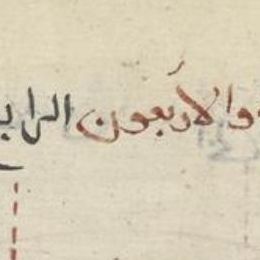 والأربعون الرا